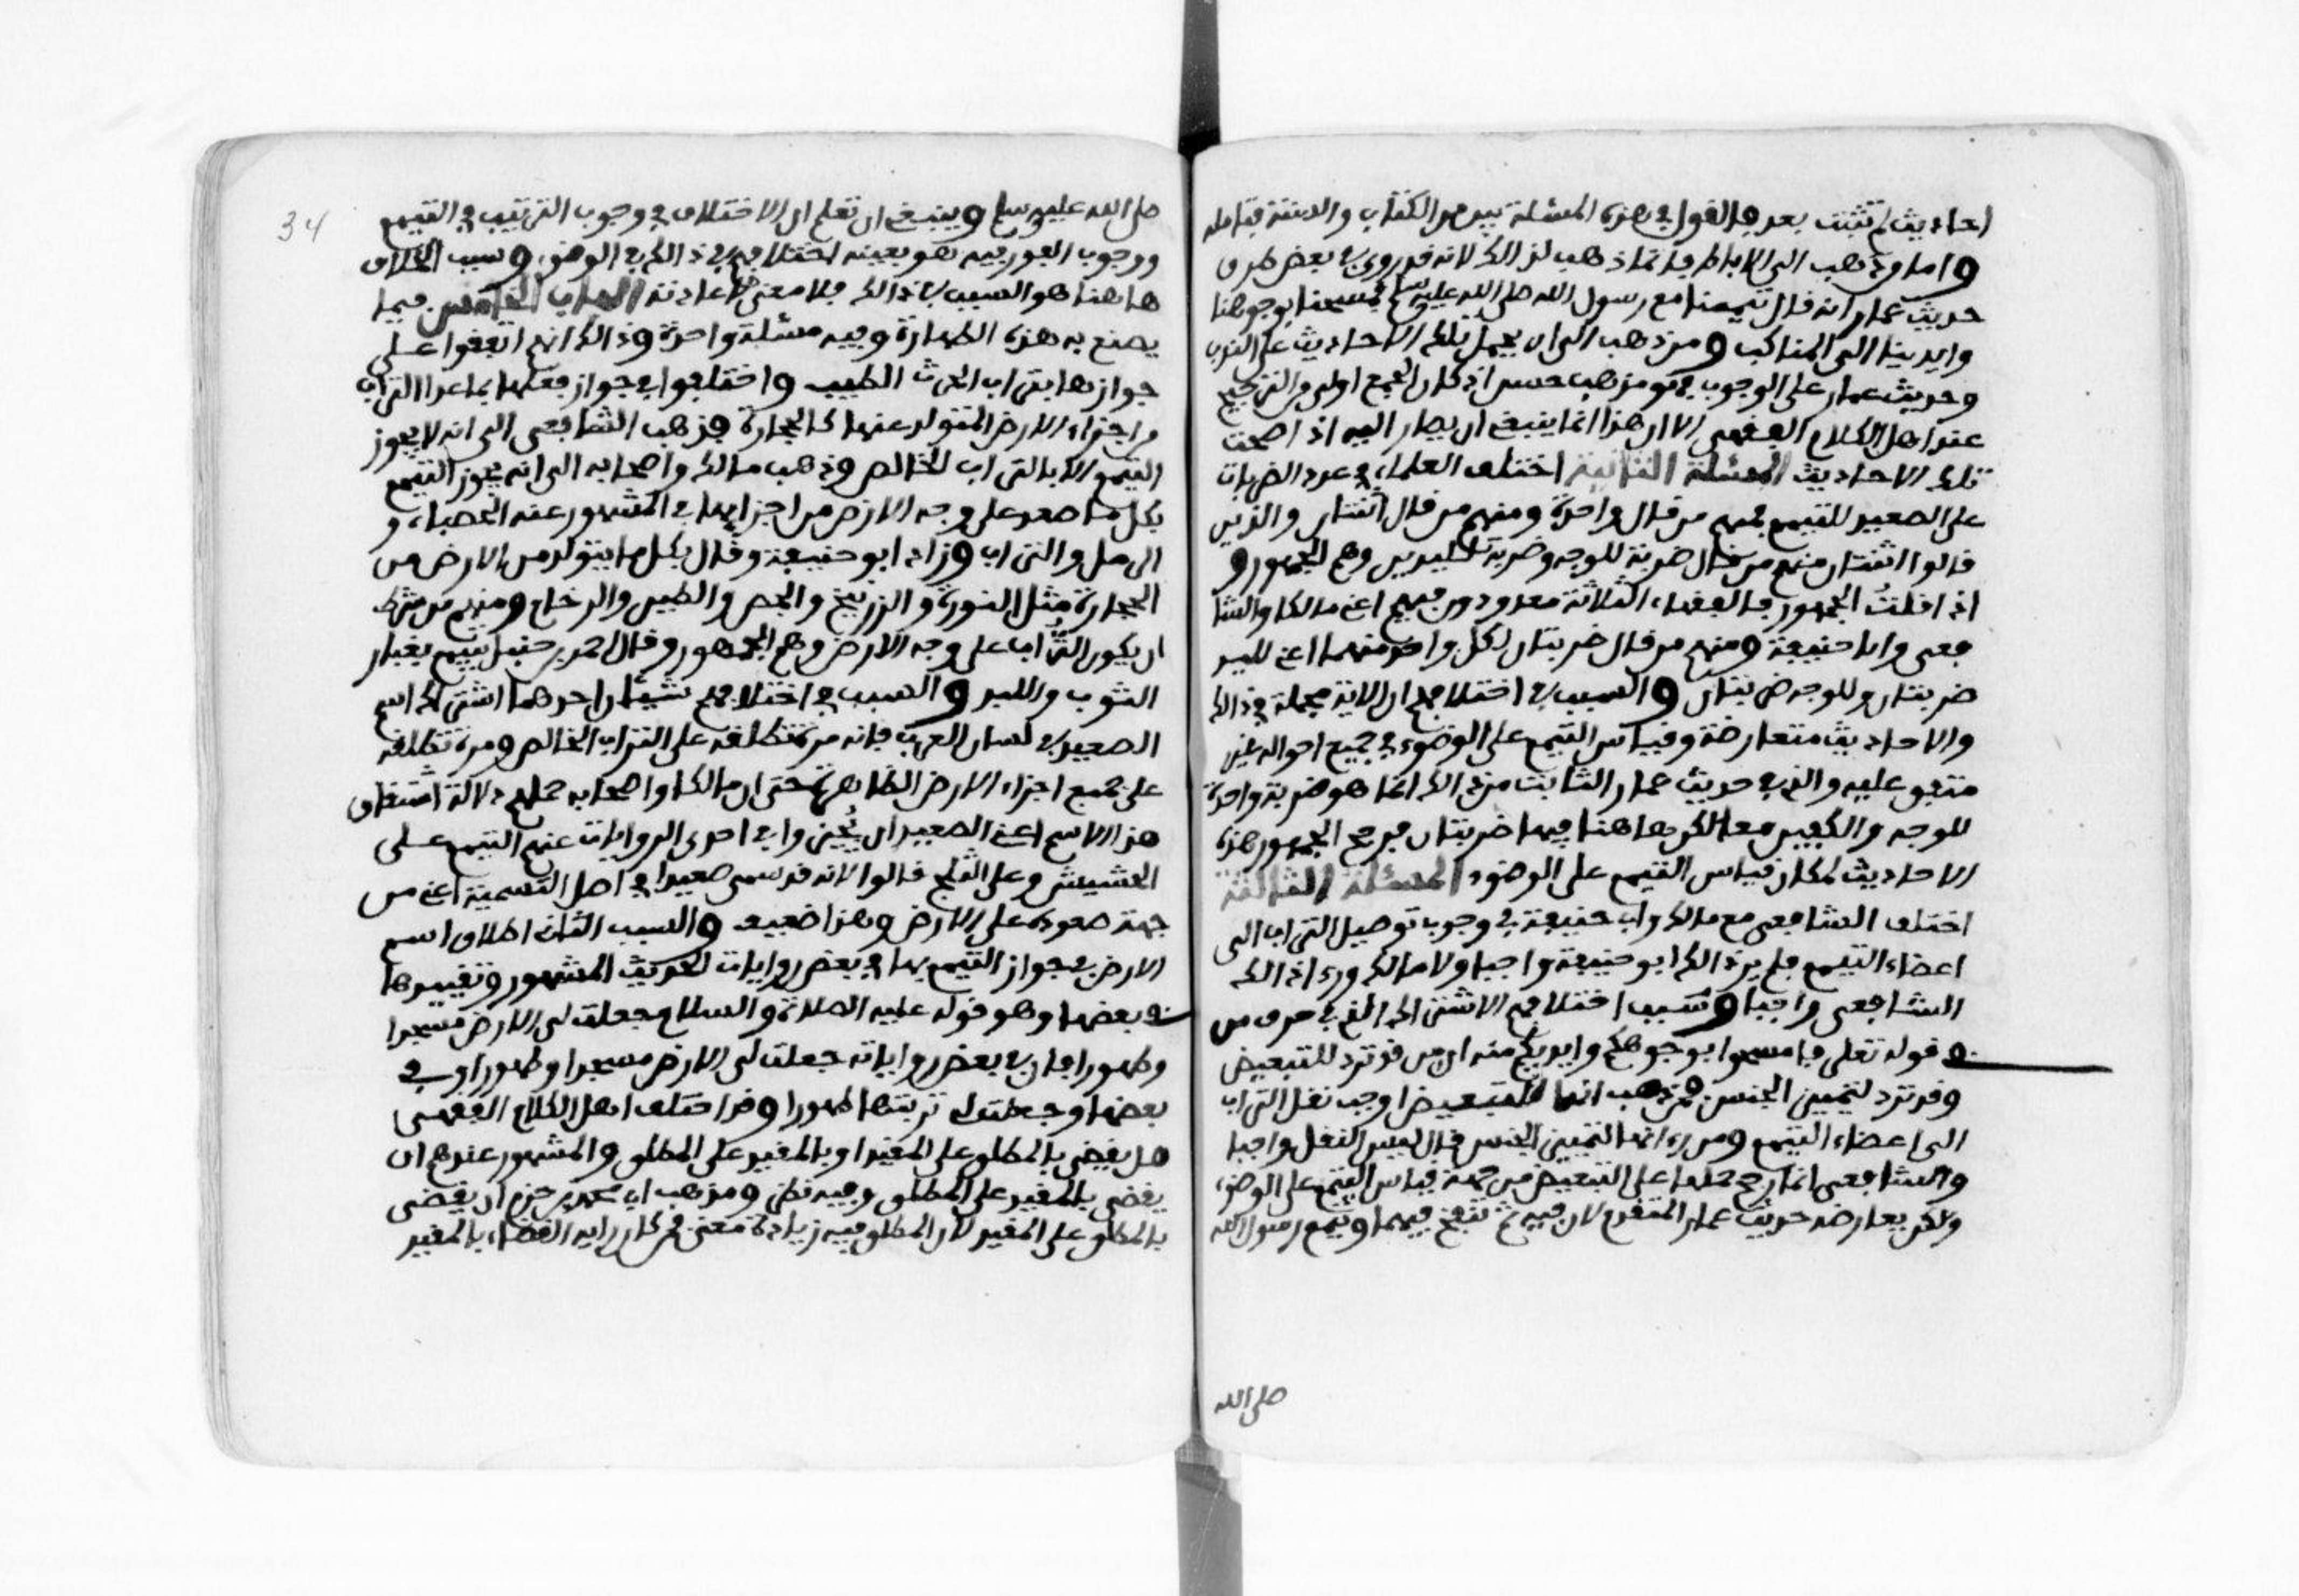 احاديث لم تثبت بعد فالقول في هذه المسئلة بين من الكتاب والسنة فتامله
واما من ذهب الى الاباط فانما ذهب لذالك لانه قد روي في بعض طرق
حديث عمار انه قال تيممنا مع رسول الله صلى الله عليه وسلم فمسحنا بوجوهنا
وايدينا الى المناكب ومن ذهب الى ان يحمل تلك الاحاديث على الندب
وحديث عمار على الوجوب فهو مذهب حسن اذ كان الجمع اولى من الترجيح
عند اهل الكلام الفقهي الا ان هذا انما ينبغي ان يصار اليه اذا صحت
تلك الاحاديث المسئلة الثانية اختلف العلماء في عدد الضربات
على الصعيد للتيمم فمنهم من قال واحدة ومنهم من قال اثنتان والذين
قالوا اثنتان منهم من قال ضربة للوجه وضربة لليدين وهم الجمهور و
اذا قلت الجمهور فالفقهاء الثلاثة معدودون فيهم اعني مالكا والشا
فعي وابا حنيفة ومنهم من قال ضربتان لكل واحد منهما اعني لليد
ضربتان وللوجه ضربتان والسبب في اختلافهم ان الاية مجملة في ذالك
والاحاديث متعارضة وقياس التيمم على الوضوء في جميع احواله غير
متفق عليه والذي في حديث عمار الثابت من ذالك انما هو ضربة واحدة
للوجه والكفين معا لكن هاهنا فيها ضربتان فرجح الجمهور هذه
الاحاديث لمكان قياس التيمم على الوضوء المسئلة الثالثة
اختلف الشافعي مع مالك وابي حنيفة في وجوب توصيل التراب الى
اعضاء التيمم فلم ير ذالك ابو حنيفة واجبا ولا مالك وراى ذالك
الشافعي واجبا وسبب اختلافهم الاشتراك الذي في حرف من
في قوله تعلى فامسحوا بوجوهكم وايديكم منه ان من قد ترد للتبعيض
وقد ترد لتمييز الجنس فمن ذهب انها للتبعيض اوجب نقل التراب
الى اعضاء التيمم ومن راى انها لتمييز الجنس قال ليس النقل واجبا
والشافعي انما رجح حملها على التبعيض من جهة قياس التيمم على الوضوء
ولكن يعارضه حديث عمار المتقدم لان فيه ثم تنفخ فيهما وتيمم رسول الله
صلى الله
34
صلى الله عليه وسلم وينبغي ان تعلم ان الاختلاف في وجوب الترتيب في التيمم
ووجوب الفور فيه هو بعينه اختلافهم في ذالك في الوضوء وسبب الخلاف
هاهنا هو السبب في ذالك فلا معنى لاعادته الباب الخامس فيما
يصنع به هذه الطهارة وفيه مسئلة واحدة وذالك انهم اتفقوا على
جوازها بتراب الحرث الطيب واختلفوا في جواز فعلها بما عدا التراب
من اجزاء الارض المتولد عنها كالحجارة فذهب الشافعي الى انه لا يجوز
التيمم الا بالتراب الخالص وذهب مالك واصحابه الى انه يجوز التيمم
بكل ما صعد على وجه الارض من اجزايها في المشهور عنه الحصباء و
الرمل والتراب وزاد ابو حنيفة وقال بكل ما يتولد من الارض من
الحجارة مثل النورة والزرنيخ والجص والطين والرخام ومنهم من شرط
ان يكون التراب على وجه الارض وهم الجمهور وقال احمد بن حنبل يتيمم بغبار
الثوب واللبد والسبب في اختلافهم شيئان احدهما اشتراك اسم
الصعيد في لسان العرب فانه مرة تطلقه على التراب الخالص ومرة تطلقه
على جميع اجزاء الارض الظاهرة حتى ان مالكا واصحابه حملهم دلالة اشتقاق
هذا الاسم اعني الصعيد ان يجيزوا في احدى الروايات عنهم التيمم على
الحشيش وعلى الثلج قالوا لانه قد سمي صعيدا في اصل التسمية اعني من
جهة صعوده على الارض وهذا ضعيف والسبب الثاني اطلاق اسم
الارض في جواز التيمم بها في بعض روايات الحديث المشهور وتقييدها
في بعضها وهو قوله عليه الصلاة والسلام جعلت لي الارض مسجدا
وطهورا فان في بعض رواياته جعلت لي الارض مسجدا وطهورا وفي
بعضها وجعلت لي تربتها طهورا وقد اختلف اهل الكلام الفقهي
هل يقضى بالمطلق على المقيد او بالمقيد على المطلق والمشهور عندهم ان
يقضى بالمقيد على المطلق وفيه نظر ومذهب ابي محمد بن حزم ان يقضى
بالمطلق على المقيد لان المطلق فيه زيادة معنى فمن كان رايه القضاء بالمقيد